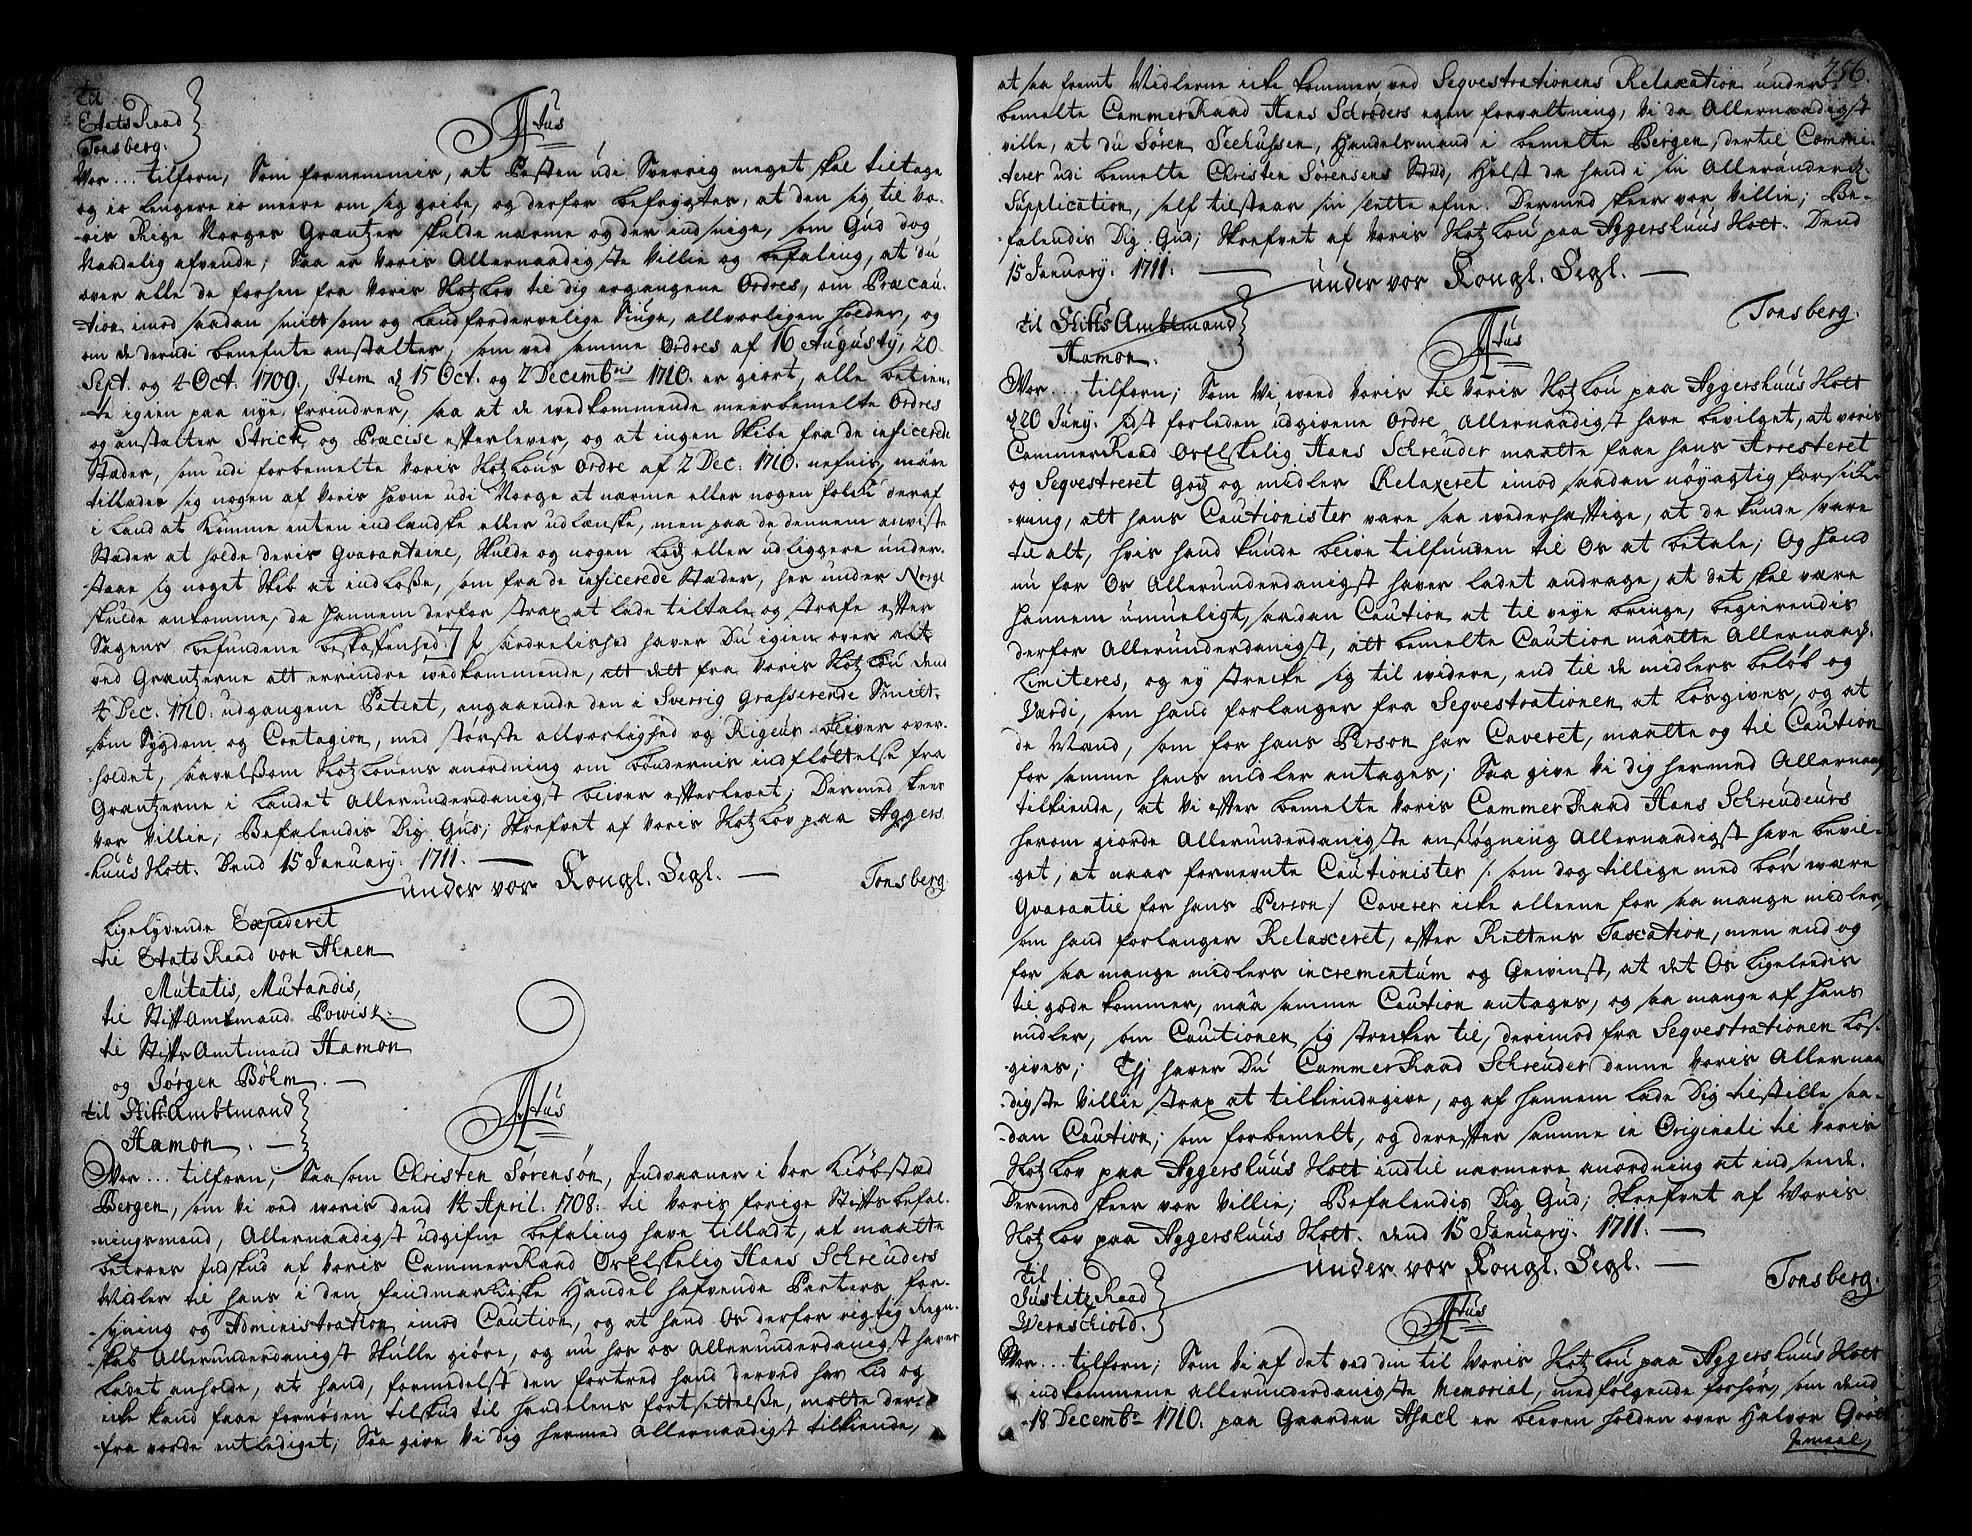 Til
Etats Raad
Tonsberg.
F4tus
Vor... tilforn, Som fornemmis, at Pesten udi Sverrig meget skal tiltage
og io lengere io meere om sig gribe, og derfor befrygtes, at den sig til Vo-
-ris Rige Norges Grantzer skulde nærme og der indsnige, som Gud dog
Naadelig afvende; Saa er Voris Allernaadigste Villie og befaling, at du
over alle de forhen fra Voris Slotz Lov til dig ergangene Ordres, om Præcau-
-tion imod saadan smitsom og landfordervelige Siuge, allvorligen holder, og
om de derudi benefnte anstalter, som ved samme Ordres af 16 Augusty, 20
Sept. og 4 Oct. 1709., Item d 15 Oct. og 2 Decembris 1710. er giort, alle betien-
-te igien paa nye Errindrer, saa at de vedkommende meerbemelte Ordres
og anstalter Strick og Præcise efterlever, og at ingen Skibe fra de inficerede
Stæder, som udi forbemelte Voris Slotz Lous Ordre af 2 Dec: 1710. nefnis, maae
tillades sig nogen af Voris Havne udi Norge at nærme eller nogen Folck deraf
i Land at komme enten indlandske eller udlænske, men paa de dennem anviste
Stæder at holde deris Qvarantaine, Skulde og nogen Lods eller udliggere under-
-staae sig noget Skib at indloße, som fra de inficerede Stæder, her under Norge
skulde ankomme, da hannem derfor strax at lade tiltale og straffe efter
Sagens befundene beskaffenhed; I særdelished haver Du igien over alt
ved Grantzerne att errindre vedkommende, att dett fra Voris Slotz Lou dend
4 Dec. 1710. udgangene Patent, angaaende den i Sverrig Grasserende Smitt-
-som Sygdom og Contagion, med største allvorlighed og Rigeur bliver over-
-holdet, saavelßom Slotz Louens anordning om Bøndernis indfløttelse fra
Grantzerne i Landet Allerunderdanigst bliver efterlevet; Dermed skeer
vor Villie, Befalendis Dig Gud; Skrefvet af Voris Slotz Lov paa Aggers
huus Slott. Dend 15 January: 1711.
under vor Kongl. Segl.
Tonsberg.
Ligelydende Expederet
til Etats Raad von Ahnen
Mutatis, Mutandis,
til Stiftamtmand Powisk.
til Stifts Amtmand Hamon
og Jørgen Bøhm.
til Stifts Ambtmand
Hamon.
F4tus
Vor... tilforn, Saasom Christen Sørensøn, Indvaaner i vor Kiøbstæd
Bergen, som Vi ved voris dend 14 April. 1708. til Voris forige Stiftsbefal-
-ningsmand, Allernaadigst udgifne befaling have tilladt, at maatte
betroes Indskud af Voris CammerRaad Os Elskelig Hans Schreuders
Midler til hans i den findmarkiske Handel hafvende Parters, for-
-syning og Administration imod Caution, og at hand Os derfor rigtig Regn-
-skab Allerunderdanigst skulle giøre, og nu hos os Allerunderdanigst haver
Ladet anholde, at hand, formedelst den fortred hand derved har lid og
icke kand faae fornøden tilskud til handelens fortsettelße, motte der-
-fra vorde entlediget; Saa give Vi dig hermed Allernaadigst tilkiende,
256.
at saa fremt Midlerne icke kommer ved Seqvestrationens Relaxation under
bemelte CammerRaad Hans Schrøders egen forvaltning, Vi da Allernaadigst
ville, at du Søren Seehußen, Handelsmand i bemelte Bergen, dertil Commi-
-terer udi bemelte Christen Sørensens Sted, Helst da hand i sin Allerunderd.
Supplication, self tilstaar sin slette efne. Dermed skeer vor Villie; Be-
falendis Dig Gud; Skrefvet af Voris Slotz Lou paa Aggershuus Slott. Dend
15 January: 1711.
under vor Kongl. Segl.
Tonsberg.
til Stifts Ambtmand
Hamon.
F4tus
Vor... tilforn; Som Vi wed Voris til Voris Slotz Lou paa Aggershuus Slott
d 20 Juny. sidst forleden udgivene Ordre Allernaadigst have bevilget, at voris
CammerRaad Os Elskelig Hans Schreuder maatte faae hans Arresteret
og Seqvestreret Gods og midler Relaxeret imod saadan nøyagtig forsik-
-ring, att hans Cautionister vare saa wederhæftige, at de kunde svare
til alt, hvis hand kunde blive tilfunden til Os at betale; Og hand
nu for Os Allerunderdanigst haver ladet andrage, at det skal være
hannem umueligt, saadan Caution at til veye bringe, begierendis
derfor Allerunderdanigst, att bemelte Caution maatte Allernaad.
Limiteres, og ey strecke sig til widere, end til de midlers beløb og
Værdi, som hand forlanger fra Seqvestrationen at losgives, og at
de Mænd, som for hans Person har Caveret, maatte og til Caution
for samme hans midler antages; Saa give Vi dig hermed Allernaad
tilkiende, at Vi efter bemelte Voris CammerRaad Hans Schreudeurs
herom giorde Allerunderdanigste ansøgning Allernaadigst have bevil-
-get, at naar fornevnte Cautionister /: som dog tillige med bør være
Qvarantie for hans Person:/ Caverer icke alleene for saa mange midler,
som hand forlanger Relaxceret, efter Rettens Taxcation, men end og
for saa mange midlers incrementum og Gewinst, at det Os ligeledis
til gode kommer, maa samme Caution antages, og saa mange af hans
midler, som Cautionen sig strecker til, derimod fra Seqvestrationen los-
-gives; Thj haver Du CammerRaad Schreuder denne Voris Allernaa-
-digste Villie strax at tilkiendegive, og af hannem lade Dig tilstille saa-
-dan Caution, som forbemelt, og derefter samme in Originali til Voris
Slotz Lov paa Aggershuus Slott indtil nærmere anordning at indsende.
Dermed skeer vor Villie; Befalendis Dig Gud; Skrefvet af Voris
Slotz Lov paa Aggershuus Slott. dend 15 January. 1711.
under vor Kongl. Segl.
Tonsberg.
til
Justitz Raad
Wernschiold.
F4tus
Vor... tilforn; Som Vi af det ved din til Voris Slotz Lou paa Aggershuus Slott
indkommene allerunderdanigste Memorial, medfølgende forhør, som dend
18 Decembr. 1710. paa Gaarden Ahacl er bleven holden over Halvor
Jemaal,